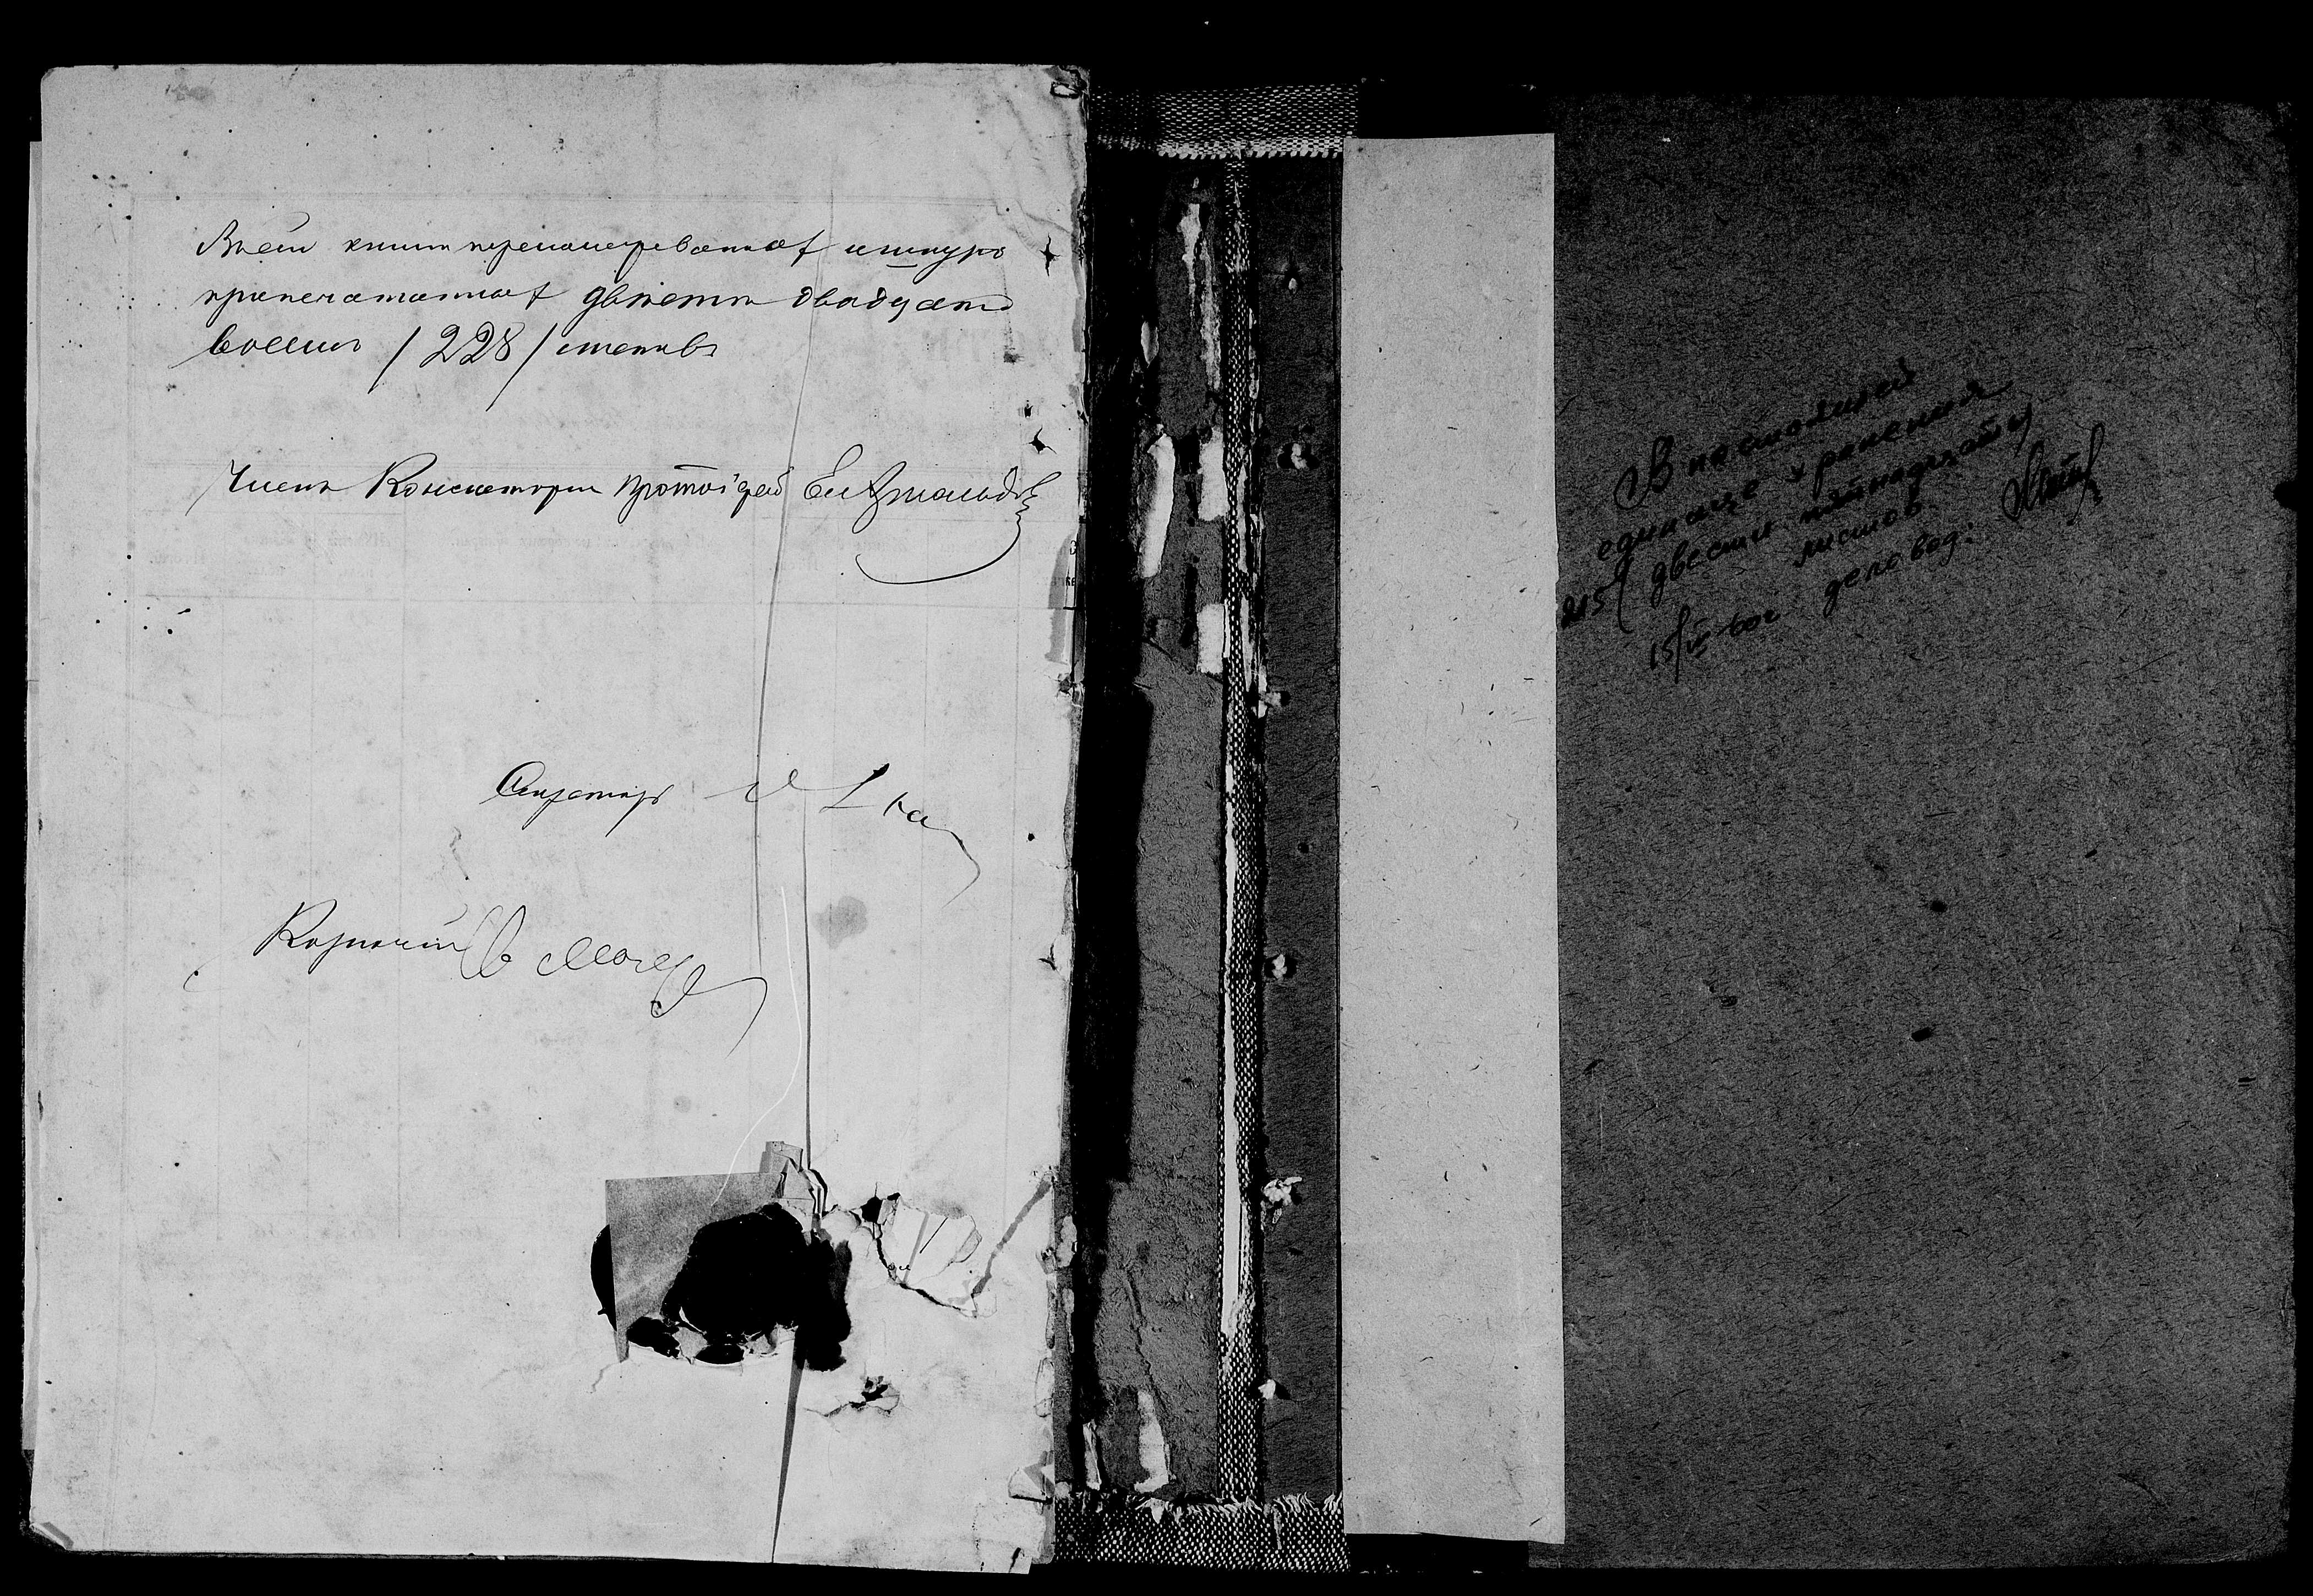 В сей книге перенумерованных и шнуро
припечатанных двести двадцать
восемь / 228 / листовъ
Членъ Консисторіи Протоіерей
Секретарь
Казначей
В настоящей
единице хранения
215 / двести пятнадцать /
листов.
15/IV 60г деловод: